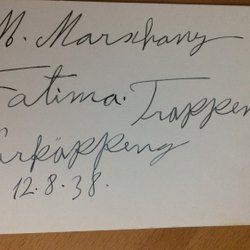 M. Marschany
Fatima. Trappen
12.8.38.